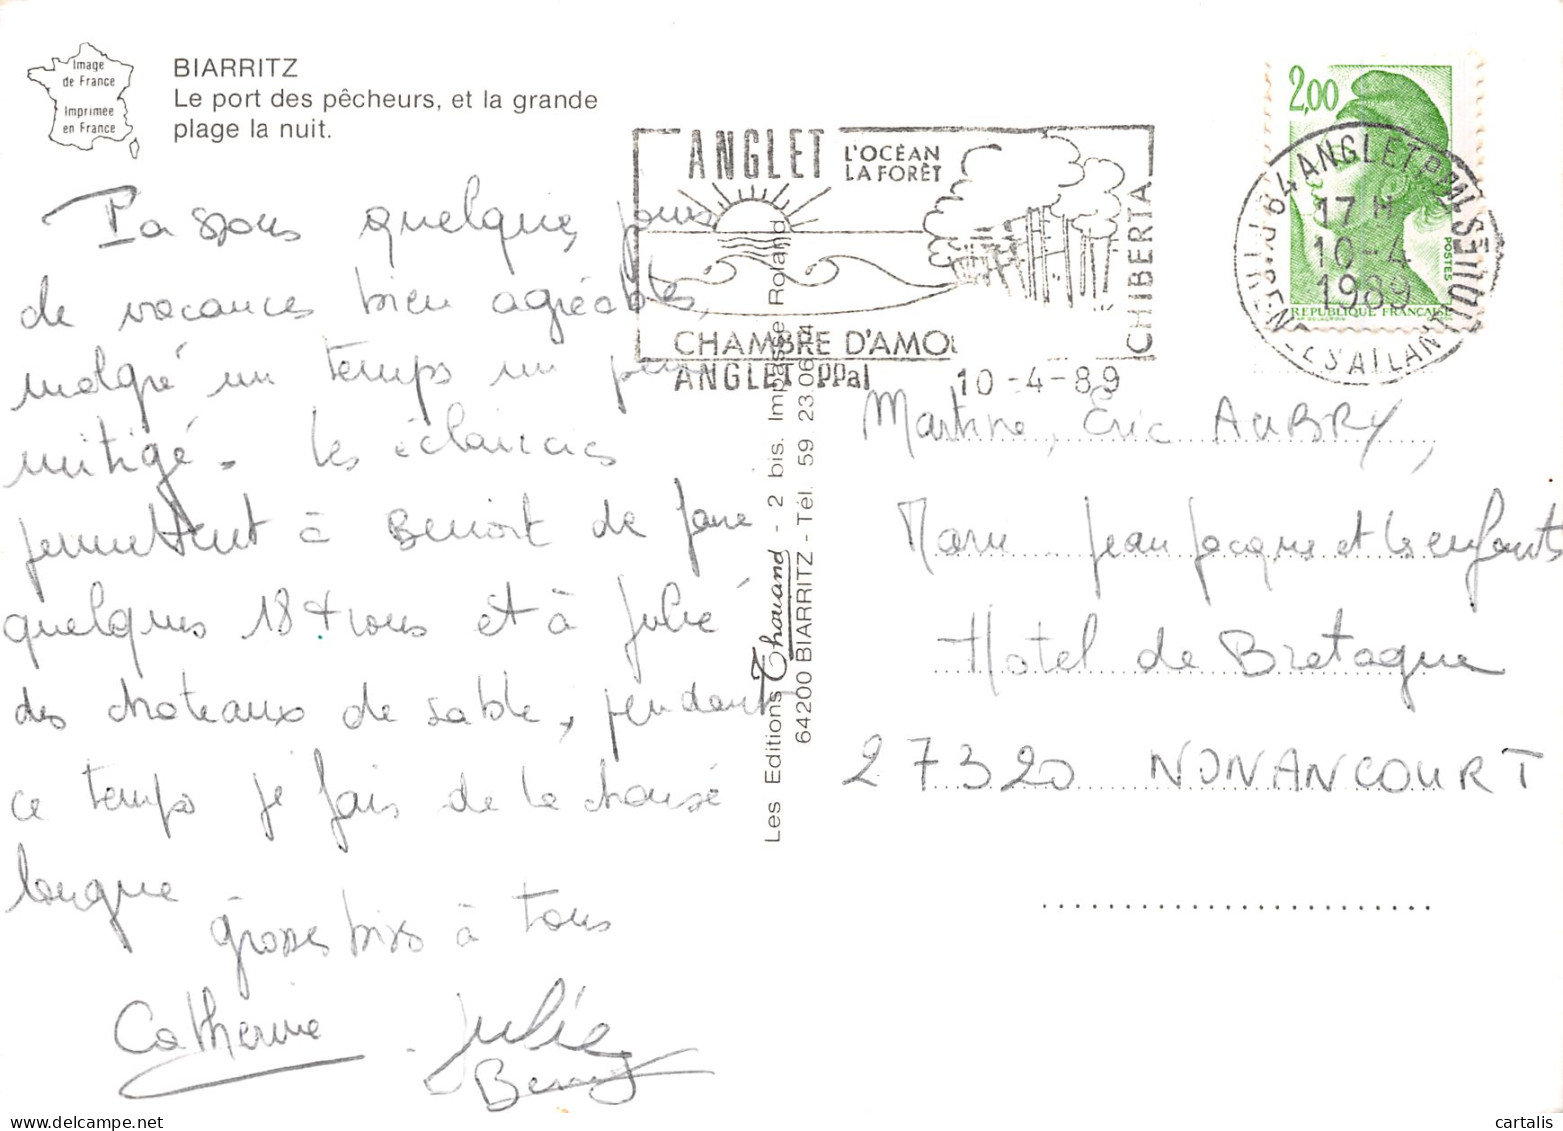 Image
de France
Imprimée
en France
BIARRITZ
Le port des pêcheurs, et la grande
plage la nuit.
Passons quelques jours
de vacances bien agréables,
malgré un temps un peu
mitigé. les éclaircies
permettent à Benoît de faire
quelques 18 trous et à Julie
des chateaux de sable, pendant
ce temps je fais de la chaise
longue
grosses bises à tous
Catherine
Julie
Les Editions Thouand - 2 bis. Impasse Roland
64200 BIARRITZ - Tél. 59 23 06
ANGLET
L'OCÉAN
LA FORÊT
CHIBERTA
CHAMBRE D'AMO
ANGLET PPal
10-4-89
2,00
POSTES
REPUBLIQUE FRANÇAISE
64 ANGLET PPAL
17 H
10-4
1989
PYRÉNÉES ATLANTIQUES
Martine, Eric AUBRY,
Marie Jean Jacques et les enfants
Hotel de Bretagne
27320 NONANCOURT
delcampe.net
cartalis